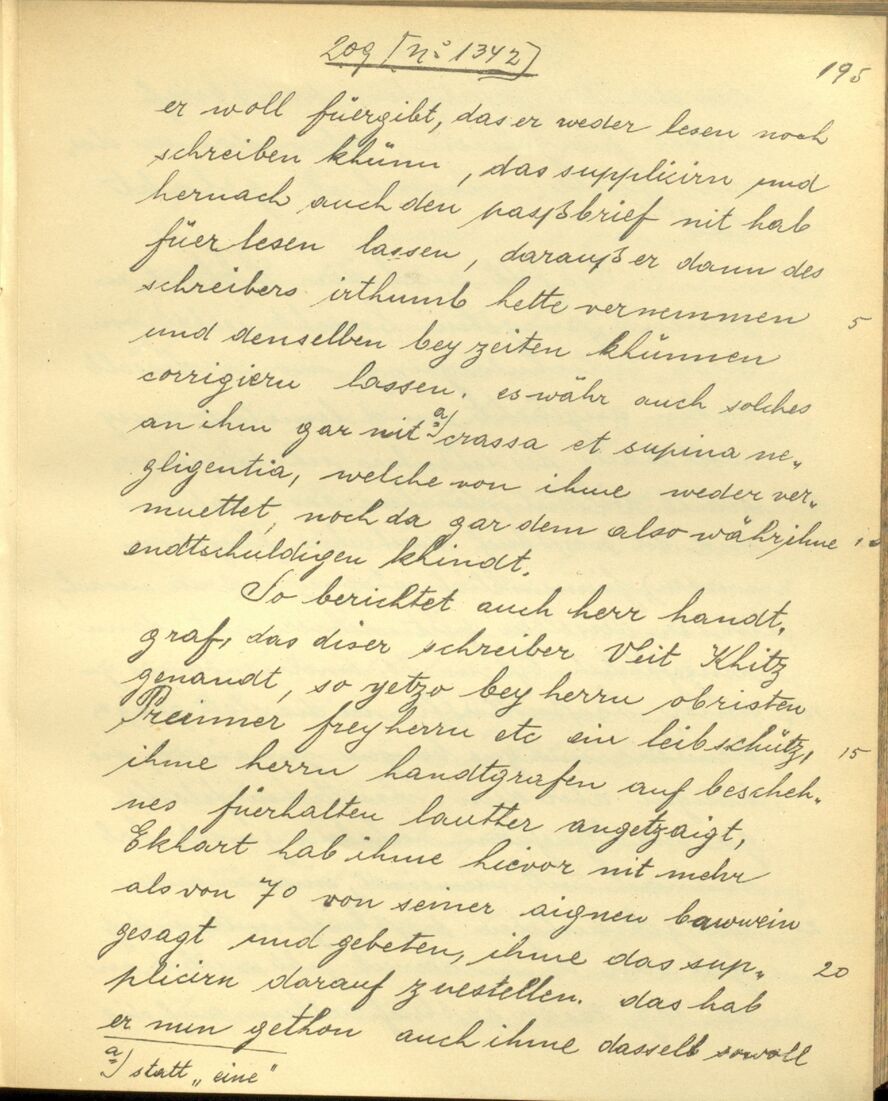 209 [No 1342]
195
er woll füergibt, das er weder lesen noch
schreiben khünn, das supplicirn und
hernach auch den paßbrief nit hab
füerlesen lassen, darauß er dann des
schreibers irthumb hette vernemmen 5
und denselben bey zeiten khünnen
corrigiern lassen. es währ auch solches
an ihm gar nit a) crassa et supina ne„
gligentia, welche von ihme weder ver„
muettet, noch da gar dem also währ ihme
endtschuldigen khindt.
So berichtet auch herr handt„
graf, das diser schreiber Veit Khitz
genandt, so yetzo bey herrn obristen
Preinner freyherrn etc ein leibschütz, 15
ihme herrn handtgrafen auf bescheh„
nes füerhalten lautter angetzaigt,
Ekhart hab ihme hievor nit mehr
als von 70 von seiner aignen bawwein
gesagt und gebeten, ihme das sup„ 20
plicirn darauf zuestellen. das hab
er nun gethon auch ihme dasselb sowoll
a) statt „eine"